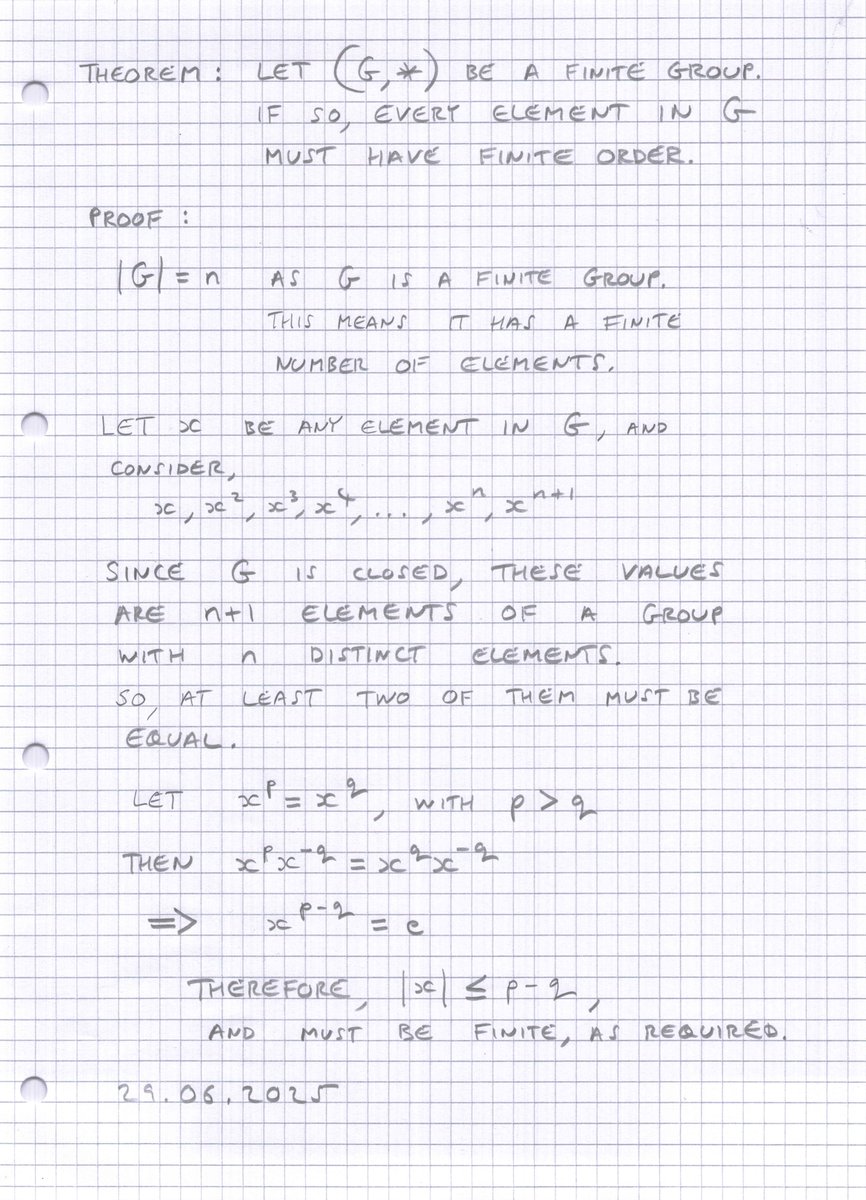 THEOREM: LET (G,*) BE A FINITE GROUP.
IF SO, EVERY ELEMENT IN G
MUST HAVE FINITE ORDER.
PROOF:
|G| = n AS G IS A FINITE GROUP.
THIS MEANS IT HAS A FINITE
NUMBER OF ELEMENTS.
LET x BE ANY ELEMENT IN G, AND
CONSIDER,
x, x², x³, x⁴, ..., xⁿ, xⁿ⁺¹
SINCE G IS CLOSED, THESE VALUES
ARE n+1 ELEMENTS OF A GROUP
WITH n DISTINCT ELEMENTS.
SO, AT LEAST TWO OF THEM MUST BE
EQUAL.
LET x^p = x^q, WITH p > q
THEN x^p x^-q = x^q x^-q
=> x^p-q = e
THEREFORE, |x| ≤ p-q,
AND MUST BE FINITE, AS REQUIRED.
29.06.2025